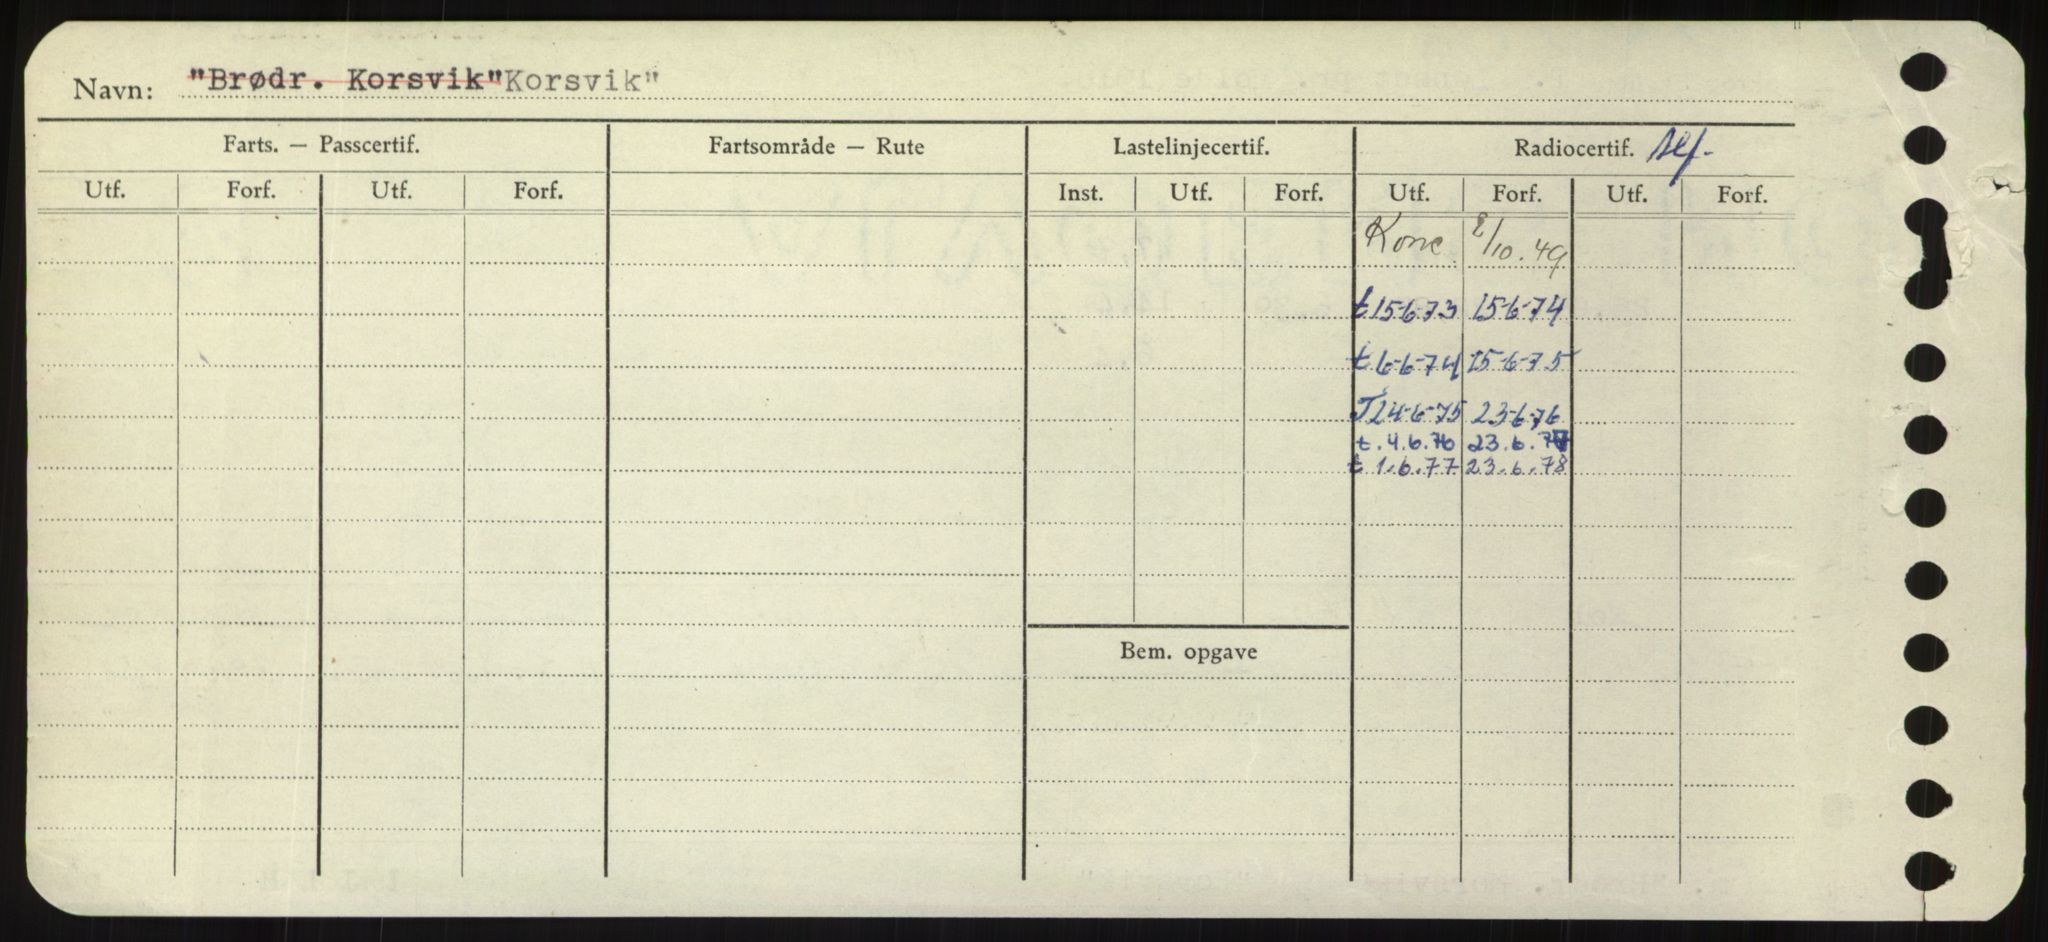 Navn: "Brødr. Korsvik"Korsvik"
Farts. — Passcertif. Fartsområde — Rute Lastelinjecertif. Radiocertif.
Utf. Forf. Utf. Forf. Inst. Utf. Forf. Utf. Forf. Utf. Forf.
/10.49
t 15-6-73 15-6-74
t 6-6-74 15-6-75
T 24-6-75 23-6-76
t. 4.6.76 23.6.77
t 1.6.77 23.6.78
Bem. opgave